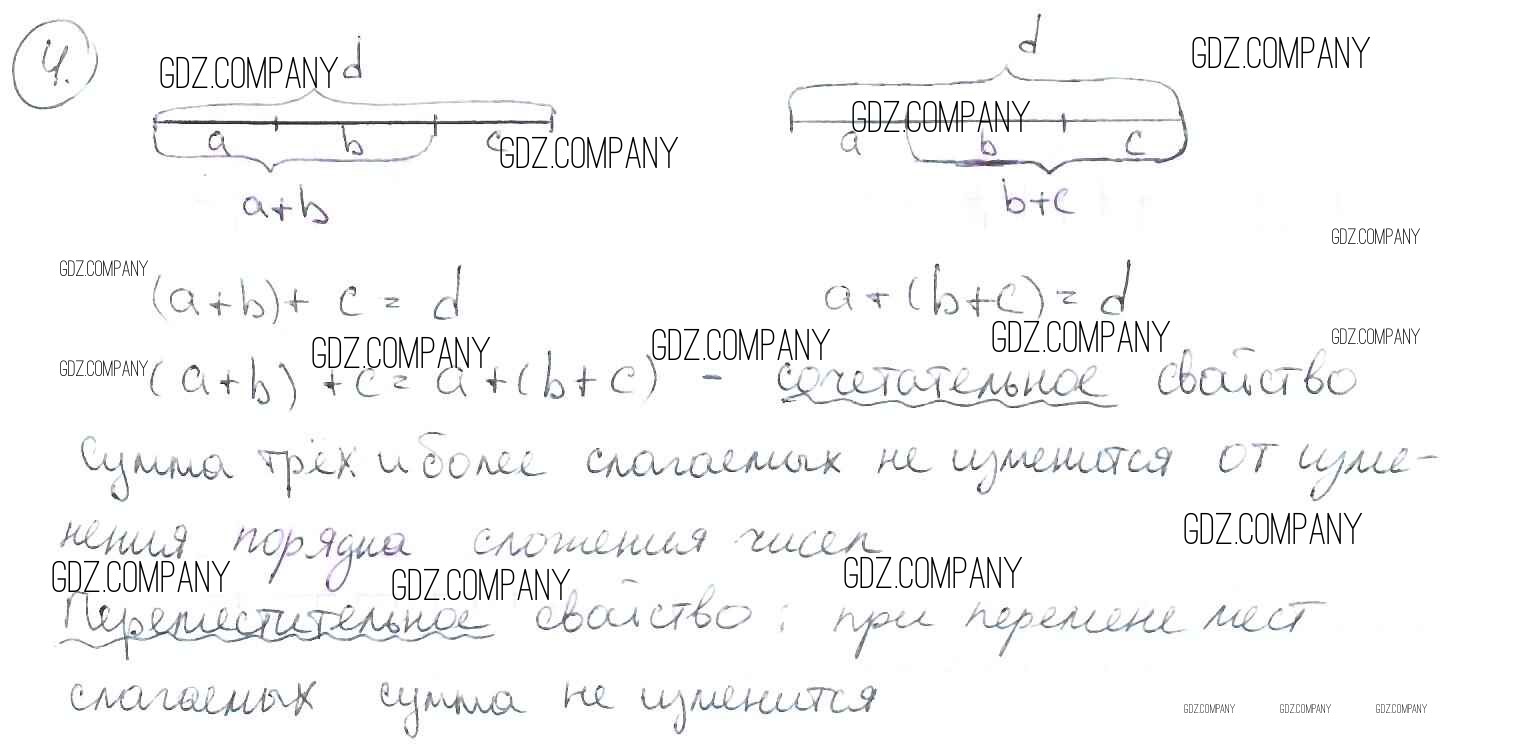 4.
GDZ.COMPANY d
d GDZ.COMPANY
a b c GDZ.COMPANY
GDZ.COMPANY
a b c
a+b
b+c
GDZ.COMPANY
GDZ.COMPANY (a+b)+ c = d
a+(b+c)= d
GDZ.COMPANY GDZ.COMPANY GDZ.COMPANY GDZ.COMPANY
GDZ.COMPANY (a+b)+c= a+(b+c) - сочетательное свойство
Сумма трёх и более слагаемых не изменится от изме-
нения порядка сложения чисел
GDZ.COMPANY
GDZ.COMPANY GDZ.COMPANY GDZ.COMPANY
Переместительное свойство: при перемене мест
слагаемых сумма не изменится
GDZ.COMPANY GDZ.COMPANY GDZ.COMPANY